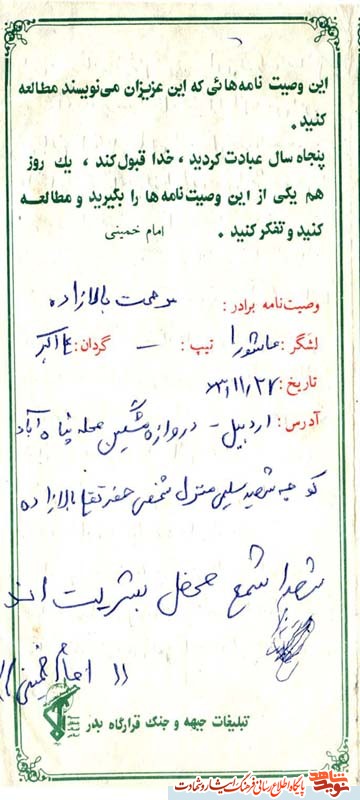 این وصیت نامه‌هائی که این عزیزان می‌نویسند مطالعه
کنید .
پنجاه سال عبادت کردید ، خدا قبول کند ، یك روز
هم یکی از این وصیت‌نامه ها را بگیرید و مطالعه
کنید و تفکر کنید . امام خمینی
وصیت‌نامه برادر : بالازاده
لشگر : عاشورا تیپ : — گردان : اکبر
تاریخ : ۶۳/۱۱/۲۷
آدرس : اردبیل - دروازه مشگین محله پناه آباد
کوچه شهید سلیمی منزل شخصی بالازاده
شهدا شمع محفل بشریت اند
(( امام خمینی ))
تبلیغات جبهه و جنگ قرارگاه بدر
نوید شاهد
پایگاه اطلاع رسانی فرهنگ ایثار و شهادت